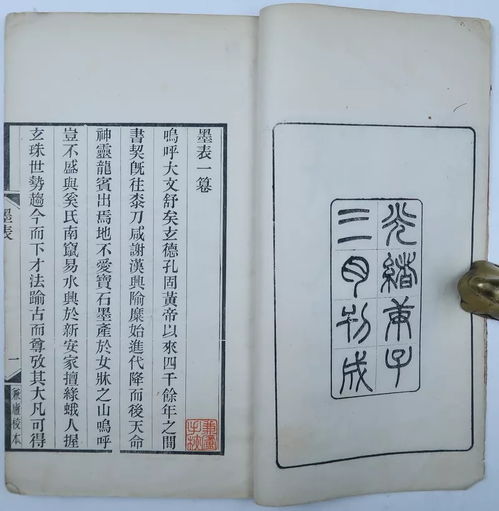 光緒庚子
三月刊成
墨表一篹
嗚呼大文舒矣玄德孔固黃帝以來四千餘年之閒
書契旣往桼刀咸謝漢興隃糜始進代降而後天命
神靈龍賓出焉地不愛寶石墨產於女牀之山嗚呼
豈不盛與奚氏南竄易水興於新安家擅綠蛾人握
玄珠世勢趨今而下才法踰古而尊攷其大凡可得
墨表
一
廬校本